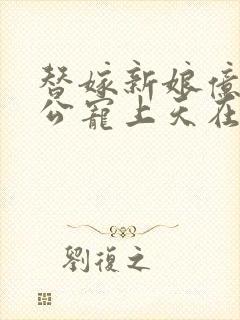 替嫁新娘億
公寵上天在
劉復之